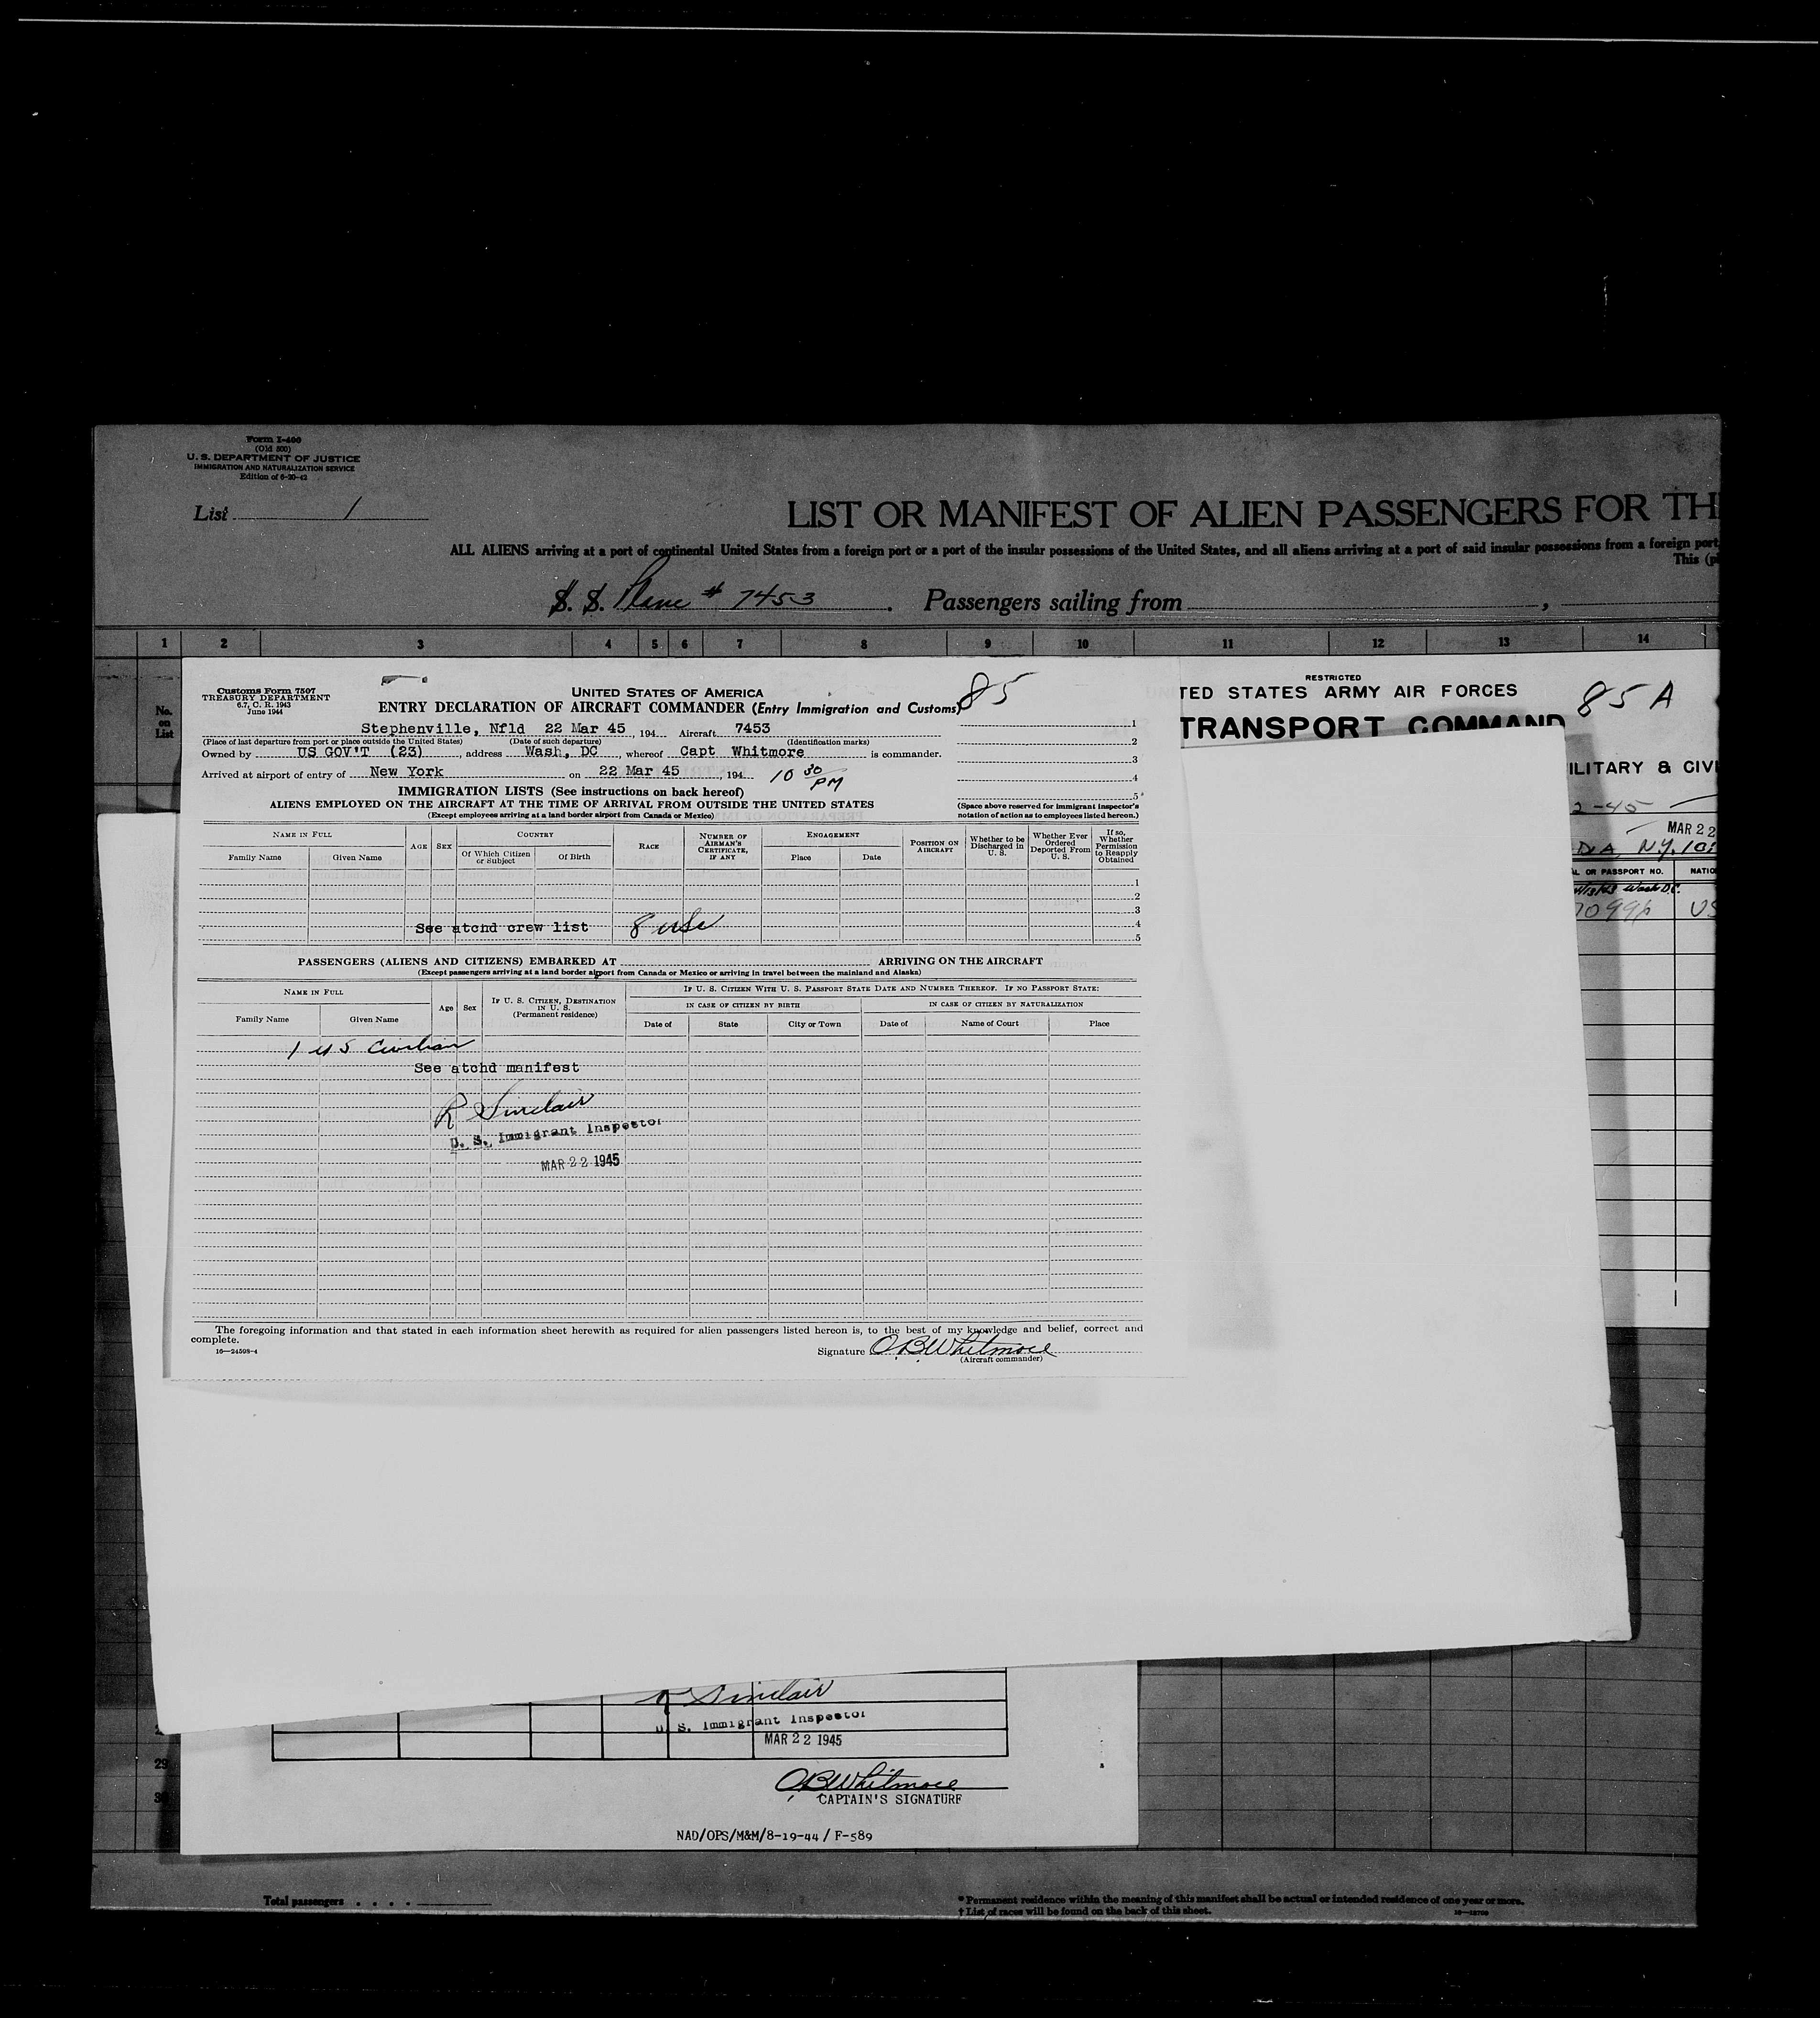 Form I-400
(Old 500)
U. S. DEPARTMENT OF JUSTICE
IMMIGRATION AND NATURALIZATION SERVICE
Edition of 6-20-42
List 1
LIST OR MANIFEST OF ALIEN PASSENGERS FOR TH
ALL ALIENS arriving at a port of continental United States from a foreign port or a port of the insular possessions of the United States, and all aliens arriving at a port of said insular possessions from a foreign port
This (pl
S. S. Plane # 7453 . Passengers sailing from ,
1 2 3 4 5 6 7 8 9 10 11 12 13 14
No. on List
Customs Form 7507
TREASURY DEPARTMENT
6.7, C. R. 1943
June 1944
UNITED STATES OF AMERICA
85
ENTRY DECLARATION OF AIRCRAFT COMMANDER (Entry Immigration and Customs)
Stephenville, Nfld 22 Mar 45, 194 Aircraft 7453
(Place of last departure from port or place outside the United States) (Date of such departure) (Identification marks)
Owned by US GOV'T (23), address Wash, DC, whereof Capt Whitmore is commander.
Arrived at airport of entry of New York on 22 Mar 45, 194 10 30 PM
1
2
3
4
5
IMMIGRATION LISTS (See instructions on back hereof)
ALIENS EMPLOYED ON THE AIRCRAFT AT THE TIME OF ARRIVAL FROM OUTSIDE THE UNITED STATES
(Except employees arriving at a land border airport from Canada or Mexico)
(Space above reserved for immigrant inspector's
notation of action as to employees listed hereon.)
NAME IN FULL AGE SEX COUNTRY RACE NUMBER OF AIRMAN'S CERTIFICATE, IF ANY ENGAGEMENT POSITION ON AIRCRAFT Whether to be Discharged in U. S. Whether Ever Ordered Deported From U. S. If so, Whether Permission to Reapply Obtained
Family Name Given Name Of Which Citizen or Subject Of Birth Place Date
1
2
3
See atchd crew list 8 4
5
PASSENGERS (ALIENS AND CITIZENS) EMBARKED AT ARRIVING ON THE AIRCRAFT
(Except passengers arriving at a land border airport from Canada or Mexico or arriving in travel between the mainland and Alaska)
NAME IN FULL Age Sex IF U. S. CITIZEN, DESTINATION IN U. S. (Permanent residence) IF U. S. CITIZEN WITH U. S. PASSPORT STATE DATE AND NUMBER THEREOF. IF NO PASSPORT STATE:
IN CASE OF CITIZEN BY BIRTH IN CASE OF CITIZEN BY NATURALIZATION
Family Name Given Name Date of State City or Town Date of Name of Court Place
1 US Civilian
See atchd manifest
R Sinclair
U. S. Immigrant Inspector
MAR 22 1945
The foregoing information and that stated in each information sheet herewith as required for alien passengers listed hereon is, to the best of my knowledge and belief, correct and
complete.
16—24598-4
Signature O.B. Whitmore
(Aircraft commander)
RESTRICTED
TED STATES ARMY AIR FORCES
85 A
TRANSPORT COMMAND
ILITARY & CIVI
2-45
MAR 22
DIA, N.Y. 10:
L OR PASSPORT NO. NATIO
Wash D.C.
70996 US
R Sinclair
U. S. Immigrant Inspector
MAR 22 1945
29
O.B. Whitmore
CAPTAIN'S SIGNATURE
NAD/OPS/M&M/8-19-44/F-589
Total passengers
* Permanent residence within the meaning of this manifest shall be actual or intended residence of one year or more.
† List of races will be found on the back of this sheet.